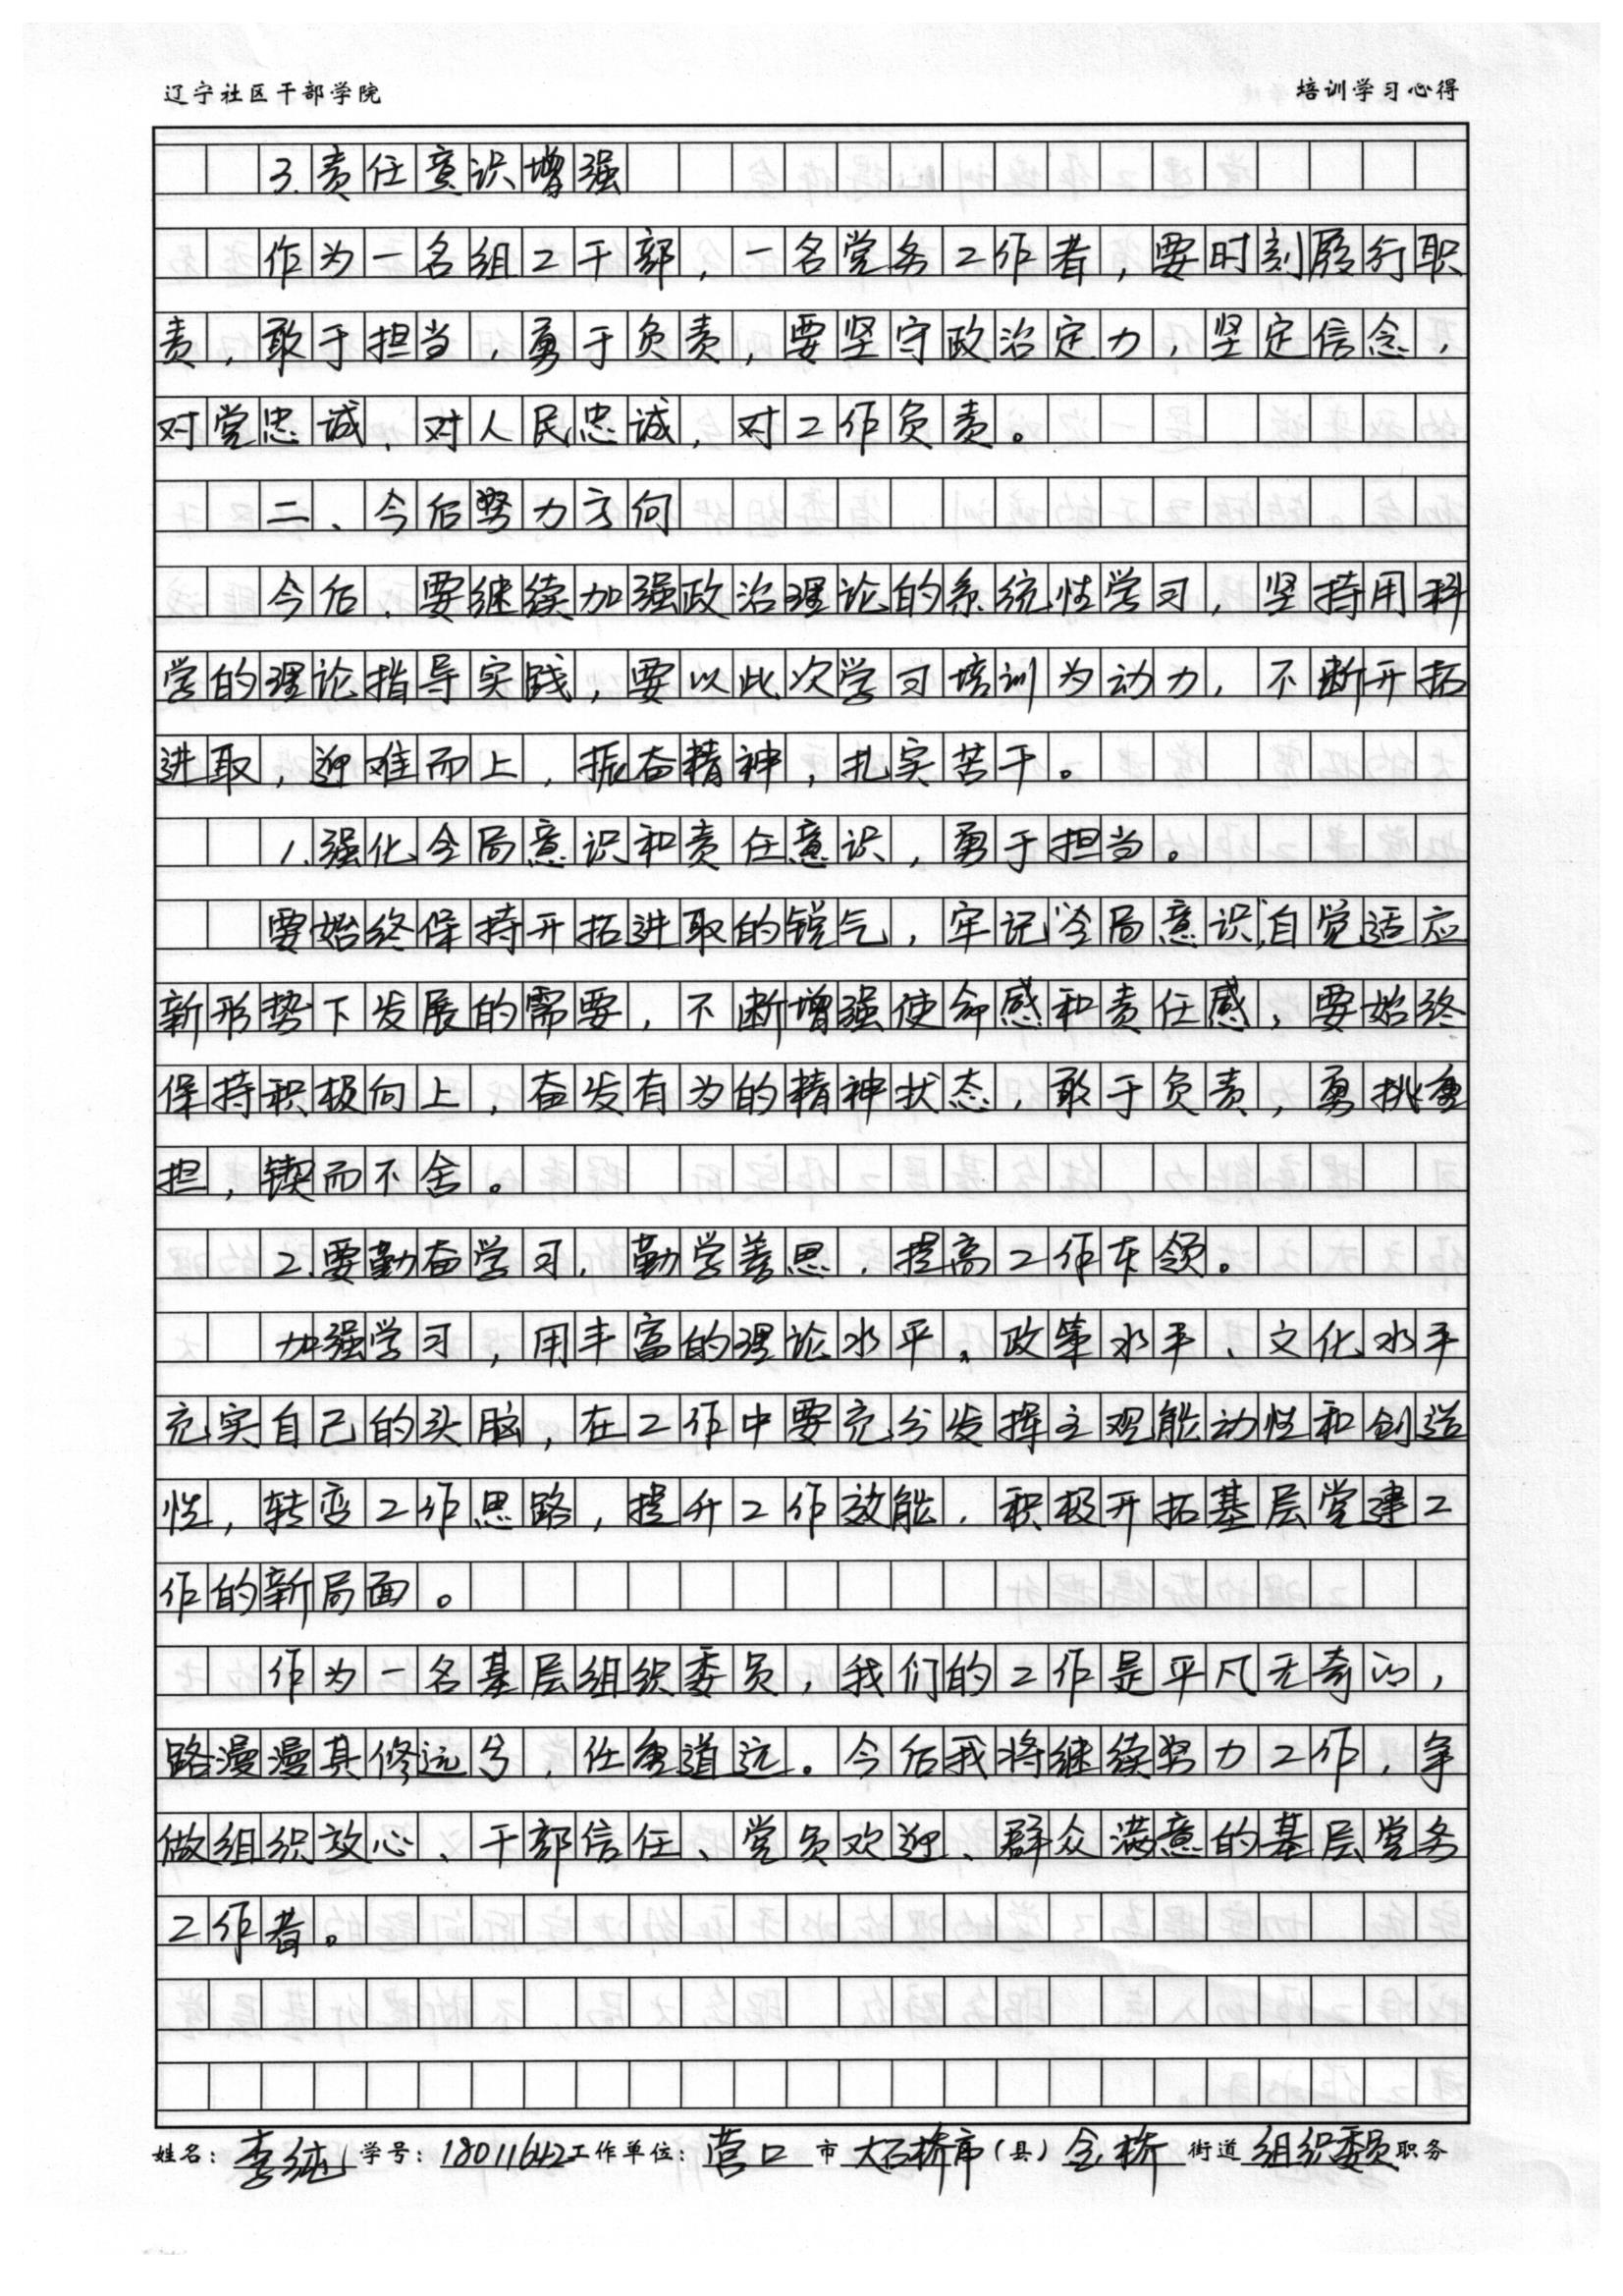 辽宁社区干部学院 培训学习心得
3.责任意识增强
作为一名组工干部,一名党务工作者,要时刻履行职
责,敢于担当,勇于负责,要坚守政治定力,坚定信念,
对党忠诚、对人民忠诚,对工作负责。
二、今后努力方向
今后,要继续加强政治理论的系统性学习,坚持用科
学的理论指导实践,要以此次学习培训为动力,不断开拓
进取,迎难而上,振奋精神,扎实苦干。
1.强化全局意识和责任意识,勇于担当。
要始终保持开拓进取的锐气,牢记“全局意识”自觉适应
新形势下发展的需要,不断增强使命感和责任感,要始终
保持积极向上,奋发有为的精神状态,敢于负责,勇挑重
担,锲而不舍。
2.要勤奋学习,勤学善思,提高工作本领。
加强学习,用丰富的理论水平、政策水平、文化水平
充实自己的头脑,在工作中要充分发挥主观能动性和创造
性,转变工作思路,提升工作效能,积极开拓基层党建工
作的新局面。
作为一名基层组织委员,我们的工作是平凡无奇的,
路漫漫其修远兮,任重道远。今后我将继续努力工作,争
做组织放心、干部信任、党员欢迎、群众满意的基层党务
工作者。
姓名:李纯 学号:18011642 工作单位:营口 市 大石桥市(县)金桥 街道 组织委员 职务